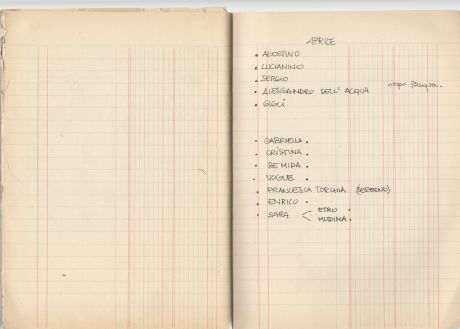 APRILE
• AGOSTINO
• LUCIANINO
• SERGIO
• ALESSANDRO DELL' ACQUA dopo Pasqua.
• GIGLI
• GABRIELLA •
• CRISTINA •
• RE MIDA •
• VOGUE •
• FRANCESCA TORCHIA (SERENO)
• ENRICO •
• SARA < ETRO •
MUDIMA •